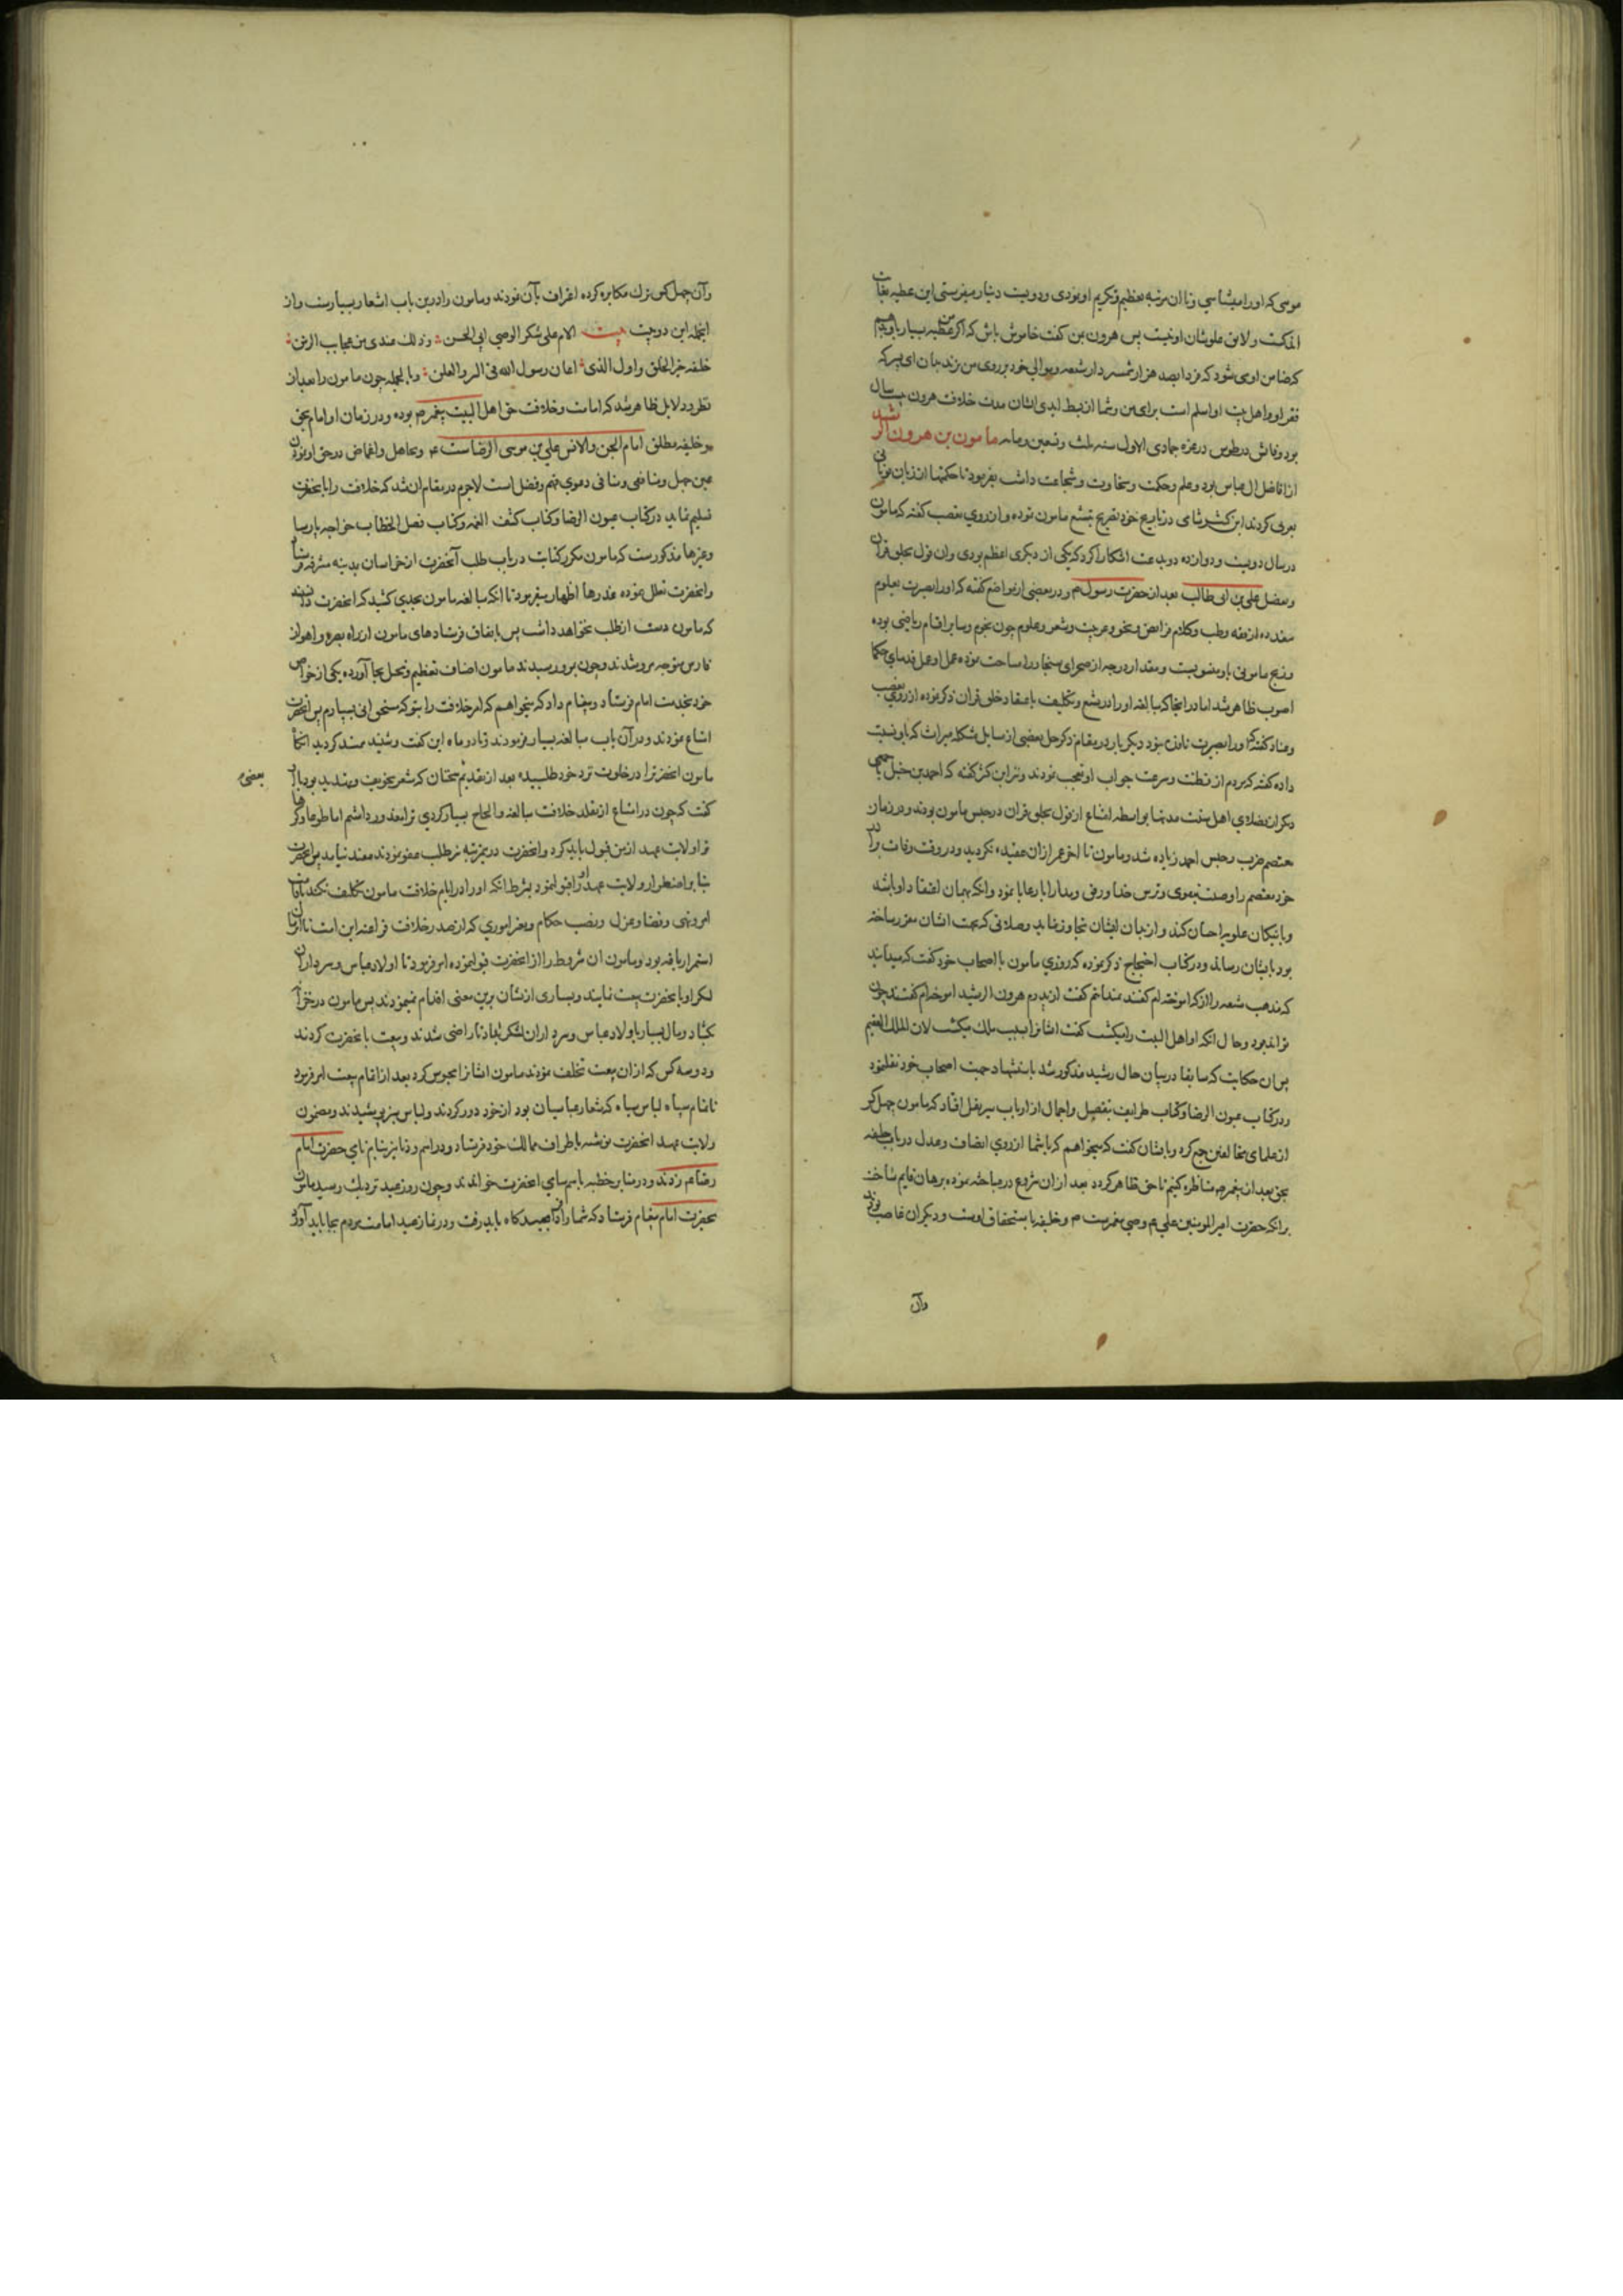 موسی که او را میشناسی و تا ان مرتبه تعظیم و تکریم او نمودی و دویست دینار میفرستی این عطیه بغایت
اندکست و لایق علو شان او نیست پس هرون بمن گفت خاموش باش که اگر من عطیه بسیار باو دهم
که ضامن او می شود که فردا بصد هزار شمشیر دار شیعه و موالی خود بر روی من نزند جان ای پسر که
فقر او و اهل بیت او اسلم است برای من و شما از بسط ایدی ایشان مدت خلافت هرون بیست سال
بود و فاتش در طوس در غره جمادی الاول سنه ثلث و تسعین و مایه مامون بن هرون الرشید
از افاضل ال عباس بود و علم و حکمت و سخاوت و شجاعت داشت بفرمود تا حکمتها از زبان یونانی
بعربی کردند ابن کثیر شامی در تاریخ خود تصریح بتشیع مامون نموده و از روی تعصب گفته که مامون
در سال دویست و دوازده دو بدعت اشکارا کرد که یکی از دیگری اعظم بودی و ان قول بخلق قران
و تفضیل علی بن ابی طالب بعد از حضرت رسول ص و در بعضی از مواضع گفته که او را بصیرت بعلوم
متعدده از فقه و طب و کلام و فرایض و نحو و عربیت و شعر و علوم چون نجوم و سایر اقسام ریاضی بوده
و زیج مامونی باو منسوبست و مقدار درجه از صحرای سنجار را مساحت نموده عمل او عمل قدمای حکما
اصوب ظاهر شد اما در اینجا که مبالغه او را در تشیع و تکلیف باعتقاد خلق قران ذکر نموده از روی تعصب
و عناد گفته که او را بصیرت نافذ نبود دیگر بار در مقام ذکر حل بعضی از مسایل مشکله میراث که باو نسبت
داده گفته که مردم از فطنت و سرعت جواب او تعجب نمودند و نیز ابن کثیر گفته که احمد بن حنبل با جمعی
دیگر از فضلای اهل سنت مدتها بواسطه امتناع از قول بخلق قران در حبس مامون بودند و در زمان
معتصم ضرب و حبس احمد زیاده شد و مامون تا اخر عمر از ان عقیده نگردید و در وقت وفات برادر
خود معتصم را وصیت بتقوی و ترس خدا و رفق و مدارا با رعایا نمود و انکه بهمان اعتقاد او باشد
و با نیکان علویه احسان کند و از بدان ایشان تجاوز نماید و صلاتی که بجهت ایشان مقرر ساخته
بود بایشان رساند و در کتاب احتجاج ذکر نموده که روزی مامون با اصحاب خود گفت که میدانید
که مذهب شیعه را از که اموخته ام گفتند نمیدانیم گفت از پدرم هرون الرشید اموخته ام گفتند چون
تواند بود و حال انکه او اهل البیت را میکشت گفت ایشانرا بسبب ملک میکشت لان الملک العقیم
پس ان حکایت که سابقا در بیان حال رشید مذکور شد باستشهاد جهت اصحاب خود نقل نمود
و در کتاب عیون الرضا و کتاب طرایف بتفصیل و اجمال از ارباب سیر نقل افتاد که مامون چهل کس
از علمای مخالفین جمع کرد و بایشان گفت که میخواهم که با شما از روی انصاف و عدل در باب خلیفه
بحق بعد از پیغمبر ص مناظره کنیم تا حق ظاهر گردد بعد از ان شروع در مباحثه نموده برهان قایم ساخت
بر انکه حضرت امیر المومنین علی ع وصی پیغمبرست ص و خلیفه باستحقاق اوست و دیگران غاصب بودند
وآن
وآن چهل کس ترک مکابره کرده اعتراف بآن نمودند و مامون را درین باب اشعار بسیارست و از
انجمله این دو بیت بیت الام علی شکر الوصی ابی الحسن و ذلک عندی من عجایب الزمن
خلیفه خیر الخلق و اول الذی اعان رسول الله فی السر و العلن و بالجمله چون مامون را بعد از
نظر در دلایل ظاهر شد که امامت و خلافت حق اهل البیت پیغمبر ص بوده و در زمان او امام بحق
و خلیفه مطلق امام الجن و الانس علی بن موسی الرضاست ع و تجاهل و اغماض در حق او نمودن
عین جهل و منافی دعوی فهم و فضل است لاجرم در مقام ان شد که خلافت را بانحضرت
تسلیم نماید در کتاب عیون الرضا و کتاب کشف الغمه و کتاب فصل الخطاب خواجه پارسا
و غیرها مذکورست که مامون مکرر کتابت در باب طلب آنحضرت از خراسان بمدینه مشرفه فرستاد
و انحضرت تعلل نموده عذرها اظهار میفرمود تا انکه مبالغه مامون بحدی کشید که انحضرت دانستند
که مامون دست از طلب نخواهد داشت پس باتفاق فرستادهای مامون از راه بصره و اهواز
و فارس متوجه مرو شدند و چون بمرو رسیدند مامون اصناف تعظیم و تبجیل بجا آورده یکی از خواص
خود بخدمت امام فرستاد و پیغام داد که میخواهم که امر خلافت را بتو که مستحق انی بسپارم پس انحضرت
امتناع نمودند و در آن باب مبالغه بسیار فرمودند و تا دو ماه این گفت و شنید ممتد گردید انگاه
مامون انحضرترا در خلوت نزد خود طلبیده بعد از تقدیم سخنان که مشعر بتخویف و تهدید بود بامام
بعضی
گفت که چون در امتناع از تقلد خلافت مبالغه و الحاح بسیار کردی ترا معذور داشتم اما طوعا و کرها
ترا ولایت عهد از من قبول باید کرد و انحضرت درین مرتبه نیز طلب عفو نمودند مفید نیامد پس انحضرت
بنا بر اضطرار ولایت عهد او را قبول نمود بشرط انکه او را در ایام خلافت مامون تکلیف نکند باقامت
امر و نهی و قضا و عزل و نصب حکام و تغیر اموری که از صدر خلافت فراعنه این امت تا انزمان
استمرار یافته بود و مامون ان شروط را از انحضرت قبول نموده امر فرمود تا اولاد عباس و سرداران
لشکر او بانحضرت بیعت نمایند و بسیاری از ایشان برین معنی اقدام نمینمودند پس مامون در خزاین
بگشاد و مال بسیار باولاد عباس و سرداران لشکر بداد تا راضی شدند و بیعت بانحضرت کردند
و دو سه کس که از ان بیعت تخلف نمودند مامون ایشانرا محبوس کرد بعد از اتمام بیعت امر فرمود
تا تمام سپاه لباس سیاه که شعار عباسیان بود از خود دور کردند و لباس سبز پوشیدند و مضمون
ولایت عهد انحضرت نوشته باطراف ممالک خود فرستاد و دراهم و دنانیر بنام نامی حضرت امام
رضا ع زدند و در منابر خطبه باسم سامی انحضرت خواندند و چون روز عید نزدیک رسید مامون
بحضرت امام پیغام فرستاد که شما را بعیدگاه باید رفت و در نماز عید امامت مردم بجا باید آورد